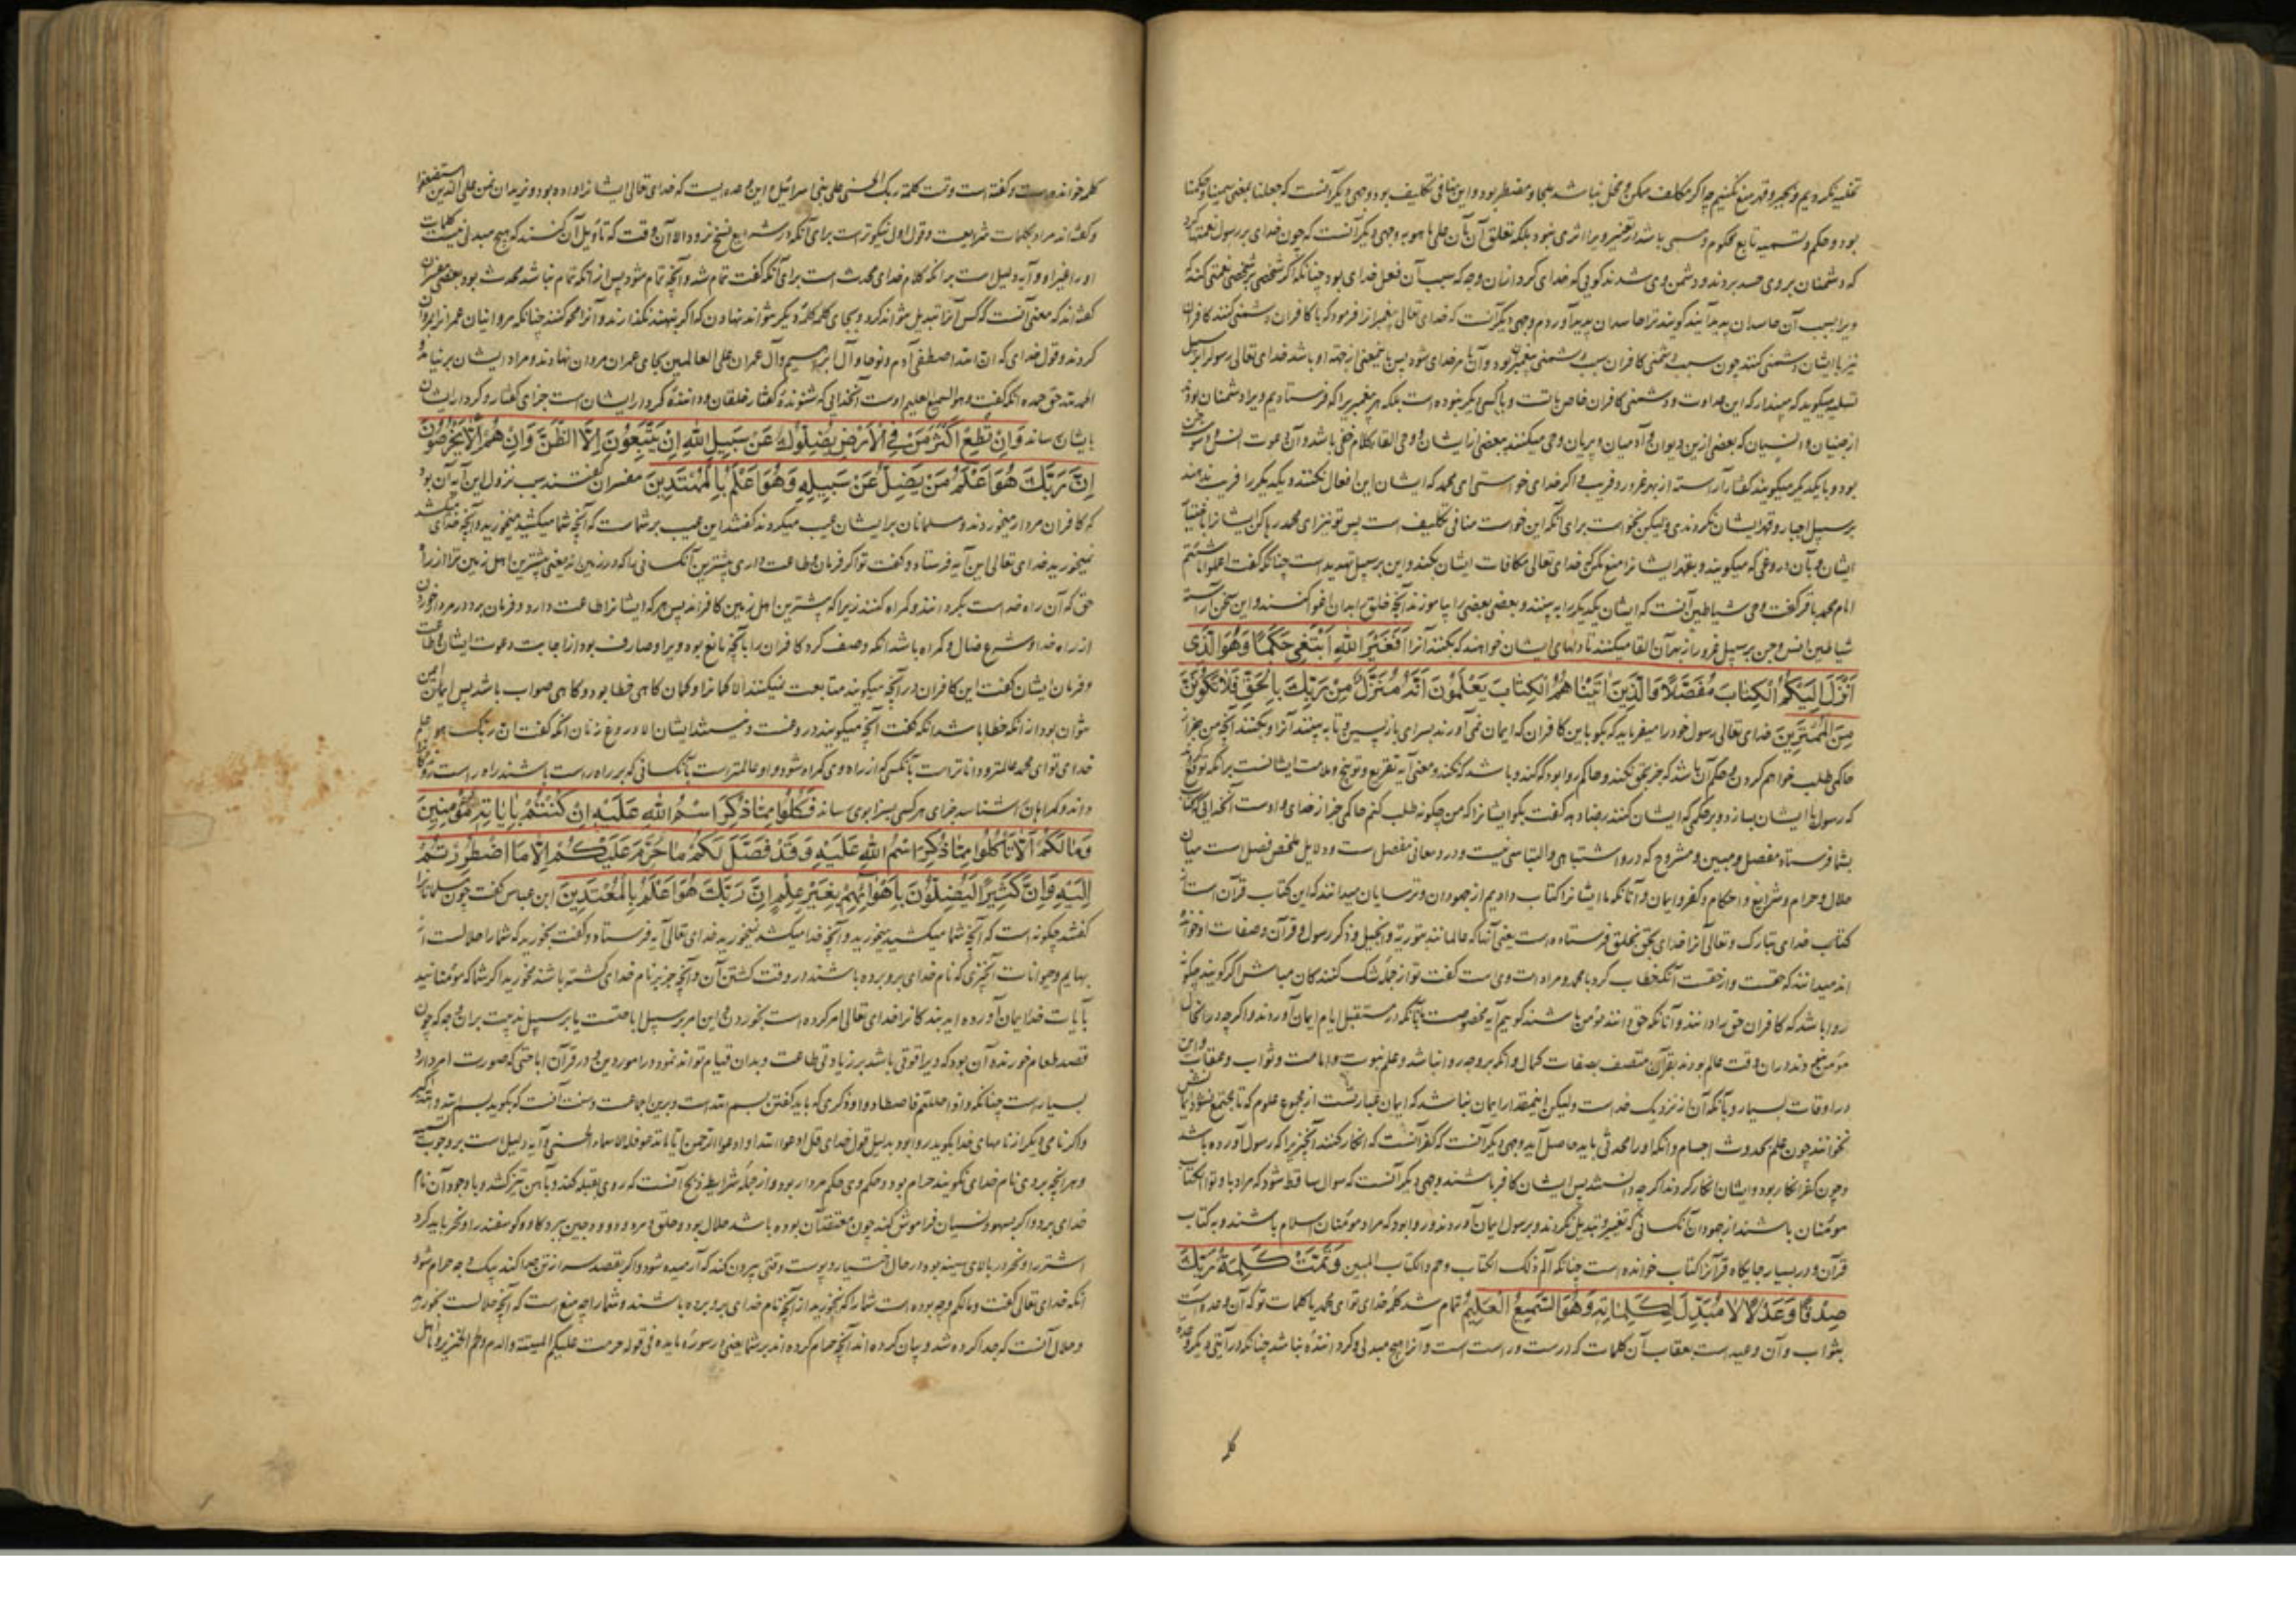 تخلیه نکردیم و بجبر و قهر منع نکنیم چرا که مکلف ممکن و مخلی نباشد ملجا و مضطر بود و این منافی تکلیف بود وجهی دیگر آنست که جعلنا بمعنی سمینا و حکمنا
بود و حکم و تسمیه تابع محکوم و مسمی باشد از تغییر ویرا اثری نبود بلکه تعلق آن بآن علی ما هو به وجهی دیگر آنست که چون خدای بر رسول نعمتها کرد
که دشمنان بروی حسد بردند و دشمن وی شدند گویی که خدای کرد ازان وجه که سبب آن فعل خدای بود چنانکه اگر شخصی بر شخصی نعمتی کند که
ویرا بسبب آن حاسدان پدید آیند گویند ترا حاسدان پدید آوردم وجهی دیگر آنست که خدای تعالی پیغمبر را فرمود که با کافران دشمنی کنند کافران
نیز با ایشان دشمنی کنند چون سبب دشمنی کافران سبب دشمنی پیغمبر بود و آن بامر خدای شود پس این معنی از جهة او باشد خدای تعالی رسول را بر سبیل
تسلیه میگوید که مپندار که این عداوت و دشمنی کافران خاص با تست و با کسی دیگر نبوده است بلکه هر پیغمبر را که فرستادیم ویرا دشمنان بودند
از جنیان و انسیان که بعضی ازین دیوان و آدمیان و پریان وحی میکنند بعضی از ایشان و وحی القاء کلام خفی باشد و آن دعوت انس و جن
بود و با یکدیگر میگویند گفتار آراسته از بهر غرور و فریب و اگر خدای خواستی ای محمد که ایشان این افعال نکنند و یکدیگر را فریب ندهند
بر سبیل اجبار و قهر ایشان نکردندی ولیکن نخواست برای آنکه این خواست منافی تکلیف است پس تو نیز ای محمد رها کن ایشانرا باختیار
ایشان و بآن دروغی که میگویند و بقهر ایشانرا منع مکن که خدای تعالی مکافات ایشان بکند و این بر سبیل تهدید است چنانکه گفت اعملوا ما شئتم
امام محمد باقر گفت وحی شیاطین آنست که ایشان یکدیگر را به بینند و بعضی بعضی را بیاموزند آنچه خلق را بدان اغوا کنند و این سخن آراسته
شیاطین انس و جن بر سبیل غرور از بهر آن القا میکنند تا دلهای ایشان خواهند که بکنند آنرا اَفَغَیْرَ اللّٰهِ اَبْتَغِی حَکَمًا وَهُوَ الَّذِی
اَنْزَلَ اِلَیْکُمُ الْکِتَابَ مُفَصَّلًا وَالَّذِینَ اٰتَیْنَاهُمُ الْکِتَابَ یَعْلَمُونَ اَنَّهُ مُنَزَّلٌ مِنْ رَبِّکَ بِالْحَقِّ فَلَا تَکُونَنَّ
مِنَ الْمُمْتَرِینَ خدای تعالی رسول خود را میفرماید که بگو باین کافران که ایمان نمی آورند
حاکمی طلب خواهم کردن و حکم آن باشد که جز بحق نکند و حاکم روا بود که کند و باشد که نکند و معنی آیه تقریع و توبیخ و ملامت ایشانست برانکه توقع
که رسول با ایشان بسازد و بر حکمی که ایشان کنند رضا دهد گفت بگو ایشانرا که من چگونه طلب کنم حاکمی جز از خدای و او است آنخدایی که کتاب
بشما فرستاد مفصل و مبین و مشروح که درو اشتباهی و التباسی نیست و درو معانی مفصل است و دلایل ملخص فصلست میان
حلال و حرام و شرایع و احکام و کفر و ایمان و آنانکه ما ایشانرا کتاب دادیم از جهودان و ترسایان میدانند که این کتاب قرآن است از
کتاب خدای تبارک و تعالی آنرا خدای بحق بخلق فرستاده است یعنی آنها که عالمانند بتوریة و انجیل و ذکر رسول و قرآن و صفات او خوانده
اند میدانند که حقست و از حقست آنگه خطاب کرد با محمد و مراد امت وی است گفت تو از جمله شک کنندگان مباش اگر گویند چگونه
روا باشد که کافران حق را دانند و آنانکه حق دانند مؤمن باشند گوییم آیه مخصوصست بآنانکه در مستقبل ایام ایمان آوردند و اگر چه در آنحال
مؤمن نبودند دران وقت عالم بودند بقرآن متصف بصفات کمال و آنکه بروجه روا نباشد و علم نبوت و امامت و ثواب و عقاب و این
در اوقات بسیار و بآنکه آن از نزدیک خداست ولیکن اینمقدار ایمان نباشد که ایمان عبارتست از مجموع علوم که تا مجتمع نشود ایمانش
نخوانند چون علم بحدوث اجسام و آنکه او را محدثی باید حاصل آید وجهی دیگر آنست که کفر آنست که انکار کنند آنچیز را که رسول آورده باشد
و چون کفر انکار بود و ایشان انکار کردند اگر چه دانستند پس ایشان کافر باشند وجهی دیگر آنست که سوال ساقط شود که مراد باوتوا الکتاب
مومنان باشند از جهودان آنکسانی که تغییر و تبدیل نکردند و برسول ایمان آوردند و روا بود که مراد مومنان اسلام باشند و به کتاب
قرآن و در بسیار جایگاه قرآنرا کتاب خوانده است چنانکه الم ذلک الکتاب و حم والکتاب المبین وَتَمَّتْ کَلِمَةُ رَبِّکَ
صِدْقًا وَعَدْلًا لَا مُبَدِّلَ لِکَلِمَاتِهِ وَهُوَ السَّمِیعُ الْعَلِیمُ تمام شد کلمه خدای تو ای محمد یا کلمات تو که آن وعده است
بثواب و آن وعید است بعقاب آن کلمات که درست و راست است و آنرا هیچ مبدلی و گرداننده نباشد چنانکه در آیتی دیگر وعده
کلمه خوانده است و گفته است وتمت کلمة ربک الحسنی علی بنی اسرائیل و این وعده ایست که خدای تعالی ایشانرا داده بود و نرید ان نمن علی الذین استضعفوا
و گفته اند مراد بکلمات شریعت و قول اول نیکوترست برای آنکه در شرایع نسخ رود الا آن وقت که تاویل آن کنند که هیچ مبدلی نیست کلمات
او را غیر او و آیه دلیل است برانکه کلام خدای محدث است برای آنکه گفت تمام شد و آنچه تمام شود پس از آنکه تمام نباشد محدث بود بعضی مفسران
گفته اند که معنی آنست که کس آنرا تبدیل نتواند کرد و بجای کلمه کلمه دیگر نتواند نهادن که اگر بنهند نگذارند و آنرا محو کنند چنانکه مروانیان عمرانرا مروان
کردند و قول خدای که ان الله اصطفی آدم و نوحا و آل ابراهیم و آل عمران علی العالمین بجای عمران مروان نهادند و مراد ایشان بر نیامد و
الحمد لله حق حمده آنگه گفت وهو السمیع العلیم او است آنخدایی که شنونده گفتار خلقان و داننده کردار ایشان است جزای گفتار و کردار ایشان
بایشان رساند وَاِنْ تُطِعْ اَکْثَرَ مَنْ فِی الْاَرْضِ یُضِلُّوکَ عَنْ سَبِیلِ اللّٰهِ اِنْ یَتَّبِعُونَ اِلَّا الظَّنَّ وَاِنْ هُمْ اِلَّا یَخْرُصُونَ
اِنَّ رَبَّکَ هُوَ اَعْلَمُ مَنْ یَضِلُّ عَنْ سَبِیلِهِ وَهُوَ اَعْلَمُ بِالْمُهْتَدِینَ مفسران گفتند سبب نزول این آیه آن بود
که کافران مردار میخوردند و مسلمانان بر ایشان عیب میکردند گفتند این عیب بر شماست که آنچه شما میکشید میخورید و آنچه خدای میکشد
نمیخورید خدای تعالی این آیه فرستاد و گفت تو اگر فرمان و طاعت داری بیشترین آنکسانی را که در زمین اند یعنی بیشترین اهل زمین ترا از راه
حق که آن راه خداست بگردانند و گمراه کنند زیرا که بیشترین اهل زمین کافرانند پس هر که ایشانرا طاعت دارد و فرمان برد در مردار خوردن
از راه خدا و شرع ضال و گمراه باشد آنگه وصف کرد کافران را بآنچه مانع بود ویرا و صارف بود از اجابت دعوت ایشان و طاعت
و فرمان ایشان گفت این کافران در آنچه میگویند متابعت نمیکنند الا گمانرا و گمان گاهی خطا بود و گاهی صواب باشد پس ایمن
نتوان بود از آنکه خطا باشد آنگه گفت آنچه میگویند دروغست و نیستند ایشان الا دروغ زنان آنگه گفت ان ربک هو اعلم
خدای تو ای محمد عالمتر و داناتر است بآنکسی که از راه وی گمراه شود و او عالمتر است بآنکسانی که بر راه راست باشند راه راست روندگانرا
داند و گمراهان را شناسد جزای هر کسی بسزا بوی رساند فَکُلُوا مِمَّا ذُکِرَ اسْمُ اللّٰهِ عَلَیْهِ اِنْ کُنْتُمْ بِاٰیَاتِهِ مُؤْمِنِینَ
وَمَا لَکُمْ اَلَّا تَاْکُلُوا مِمَّا ذُکِرَ اسْمُ اللّٰهِ عَلَیْهِ وَقَدْ فَصَّلَ لَکُمْ مَا حَرَّمَ عَلَیْکُمْ اِلَّا مَا اضْطُرِرْتُمْ
اِلَیْهِ وَاِنَّ کَثِیرًا لَیُضِلُّونَ بِاَهْوَائِهِمْ بِغَیْرِ عِلْمٍ اِنَّ رَبَّکَ هُوَ اَعْلَمُ بِالْمُعْتَدِینَ ابن عباس گفت چون مسلمانانرا
گفتند چگونه است که آنچه شما میکشید میخورید و آنچه خدا میکشد نمیخورید خدای تعالی آیه فرستاد و گفت بخورید که شما را حلالست از
بهایم و حیوانات آنچیزی که نام خدای برو برده باشند در وقت کشتن آن و آنچه جز بر نام خدای کشته باشند مخورید اگر شما که مومنانید
بآیات خدا ایمان آورده اید بندگانرا خدای تعالی امر کرده است بخوردن و این امر بر سبیل اباحتست یا بر سبیل ندبیت بران وجه که چون
قصد طعام خورنده آن بود که ویرا قوتی باشد بر زیادتی طاعت و بدان قیام تواند نمود در امور دین و در قرآن اباحتی که صورت امر دارد
بسیار است چنانکه واذا حللتم فاصطادوا و ذکری که باید گفتن بسم الله است و برین اجماعست و سنت آنست که بگوید بسم الله والله اکبر
و اگر نامی دیگر از نامهای خدا بگوید روا بود بدلیل قول خدای قل ادعوا الله او ادعوا الرحمن ایاما تدعوا فله الاسماء الحسنی و آیه دلیل است بر وجوب تسمیه
و هر آنچه بروی نام خدای نگویند حرام بود و حکم وی حکم مردار بود و از جمله شرایط ذبح آنست که روی بقبله کند و بآهن تیز کشد و با وجود آن نام
خدای برد و اگر بسهو و نسیان فراموش کند چون معتقد آن بوده باشد حلال بود و حلق و مری و ودجین ببرد گاو و گوسفند را و نحر باید کرد
اشتر را و نحر در بالای سینه بود در حال اختیار و پوست وقتی بیرون کند که آرمیده شود و اگر بقصد سر از تن جدا کند بیک وجه حرام شود
آنگه خدای تعالی گفت و مالکم و چه بوده است شما را که نخورید از آنچه نام خدای برو برده باشند و شما را چه منع است که آنچه حلالست نخورید
و حلال آنست که جدا کرده شد و بیان کرده اند آنچه حرام کرده اند بر شما یعنی در سوره مایده فی قوله حرمت علیکم المیتة والدم ولحم الخنزیر وما اهل